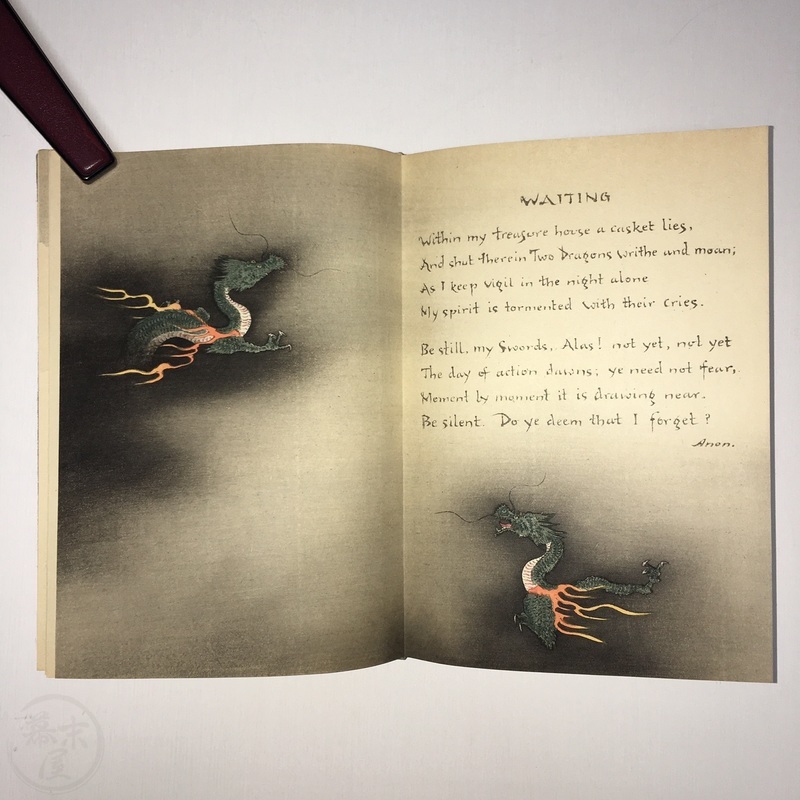 WAITING
Within my treasure house a casket lies,
And shut therein Two Dragons writhe and moan;
As I keep vigil in the night alone
My spirit is tormented with their cries.
Be still, my Swords, Alas! not yet, not yet
The day of action dawns; ye need not fear,
Moment by moment it is drawing near.
Be silent. Do ye deem that I forget?
Anon.
幕末
屋